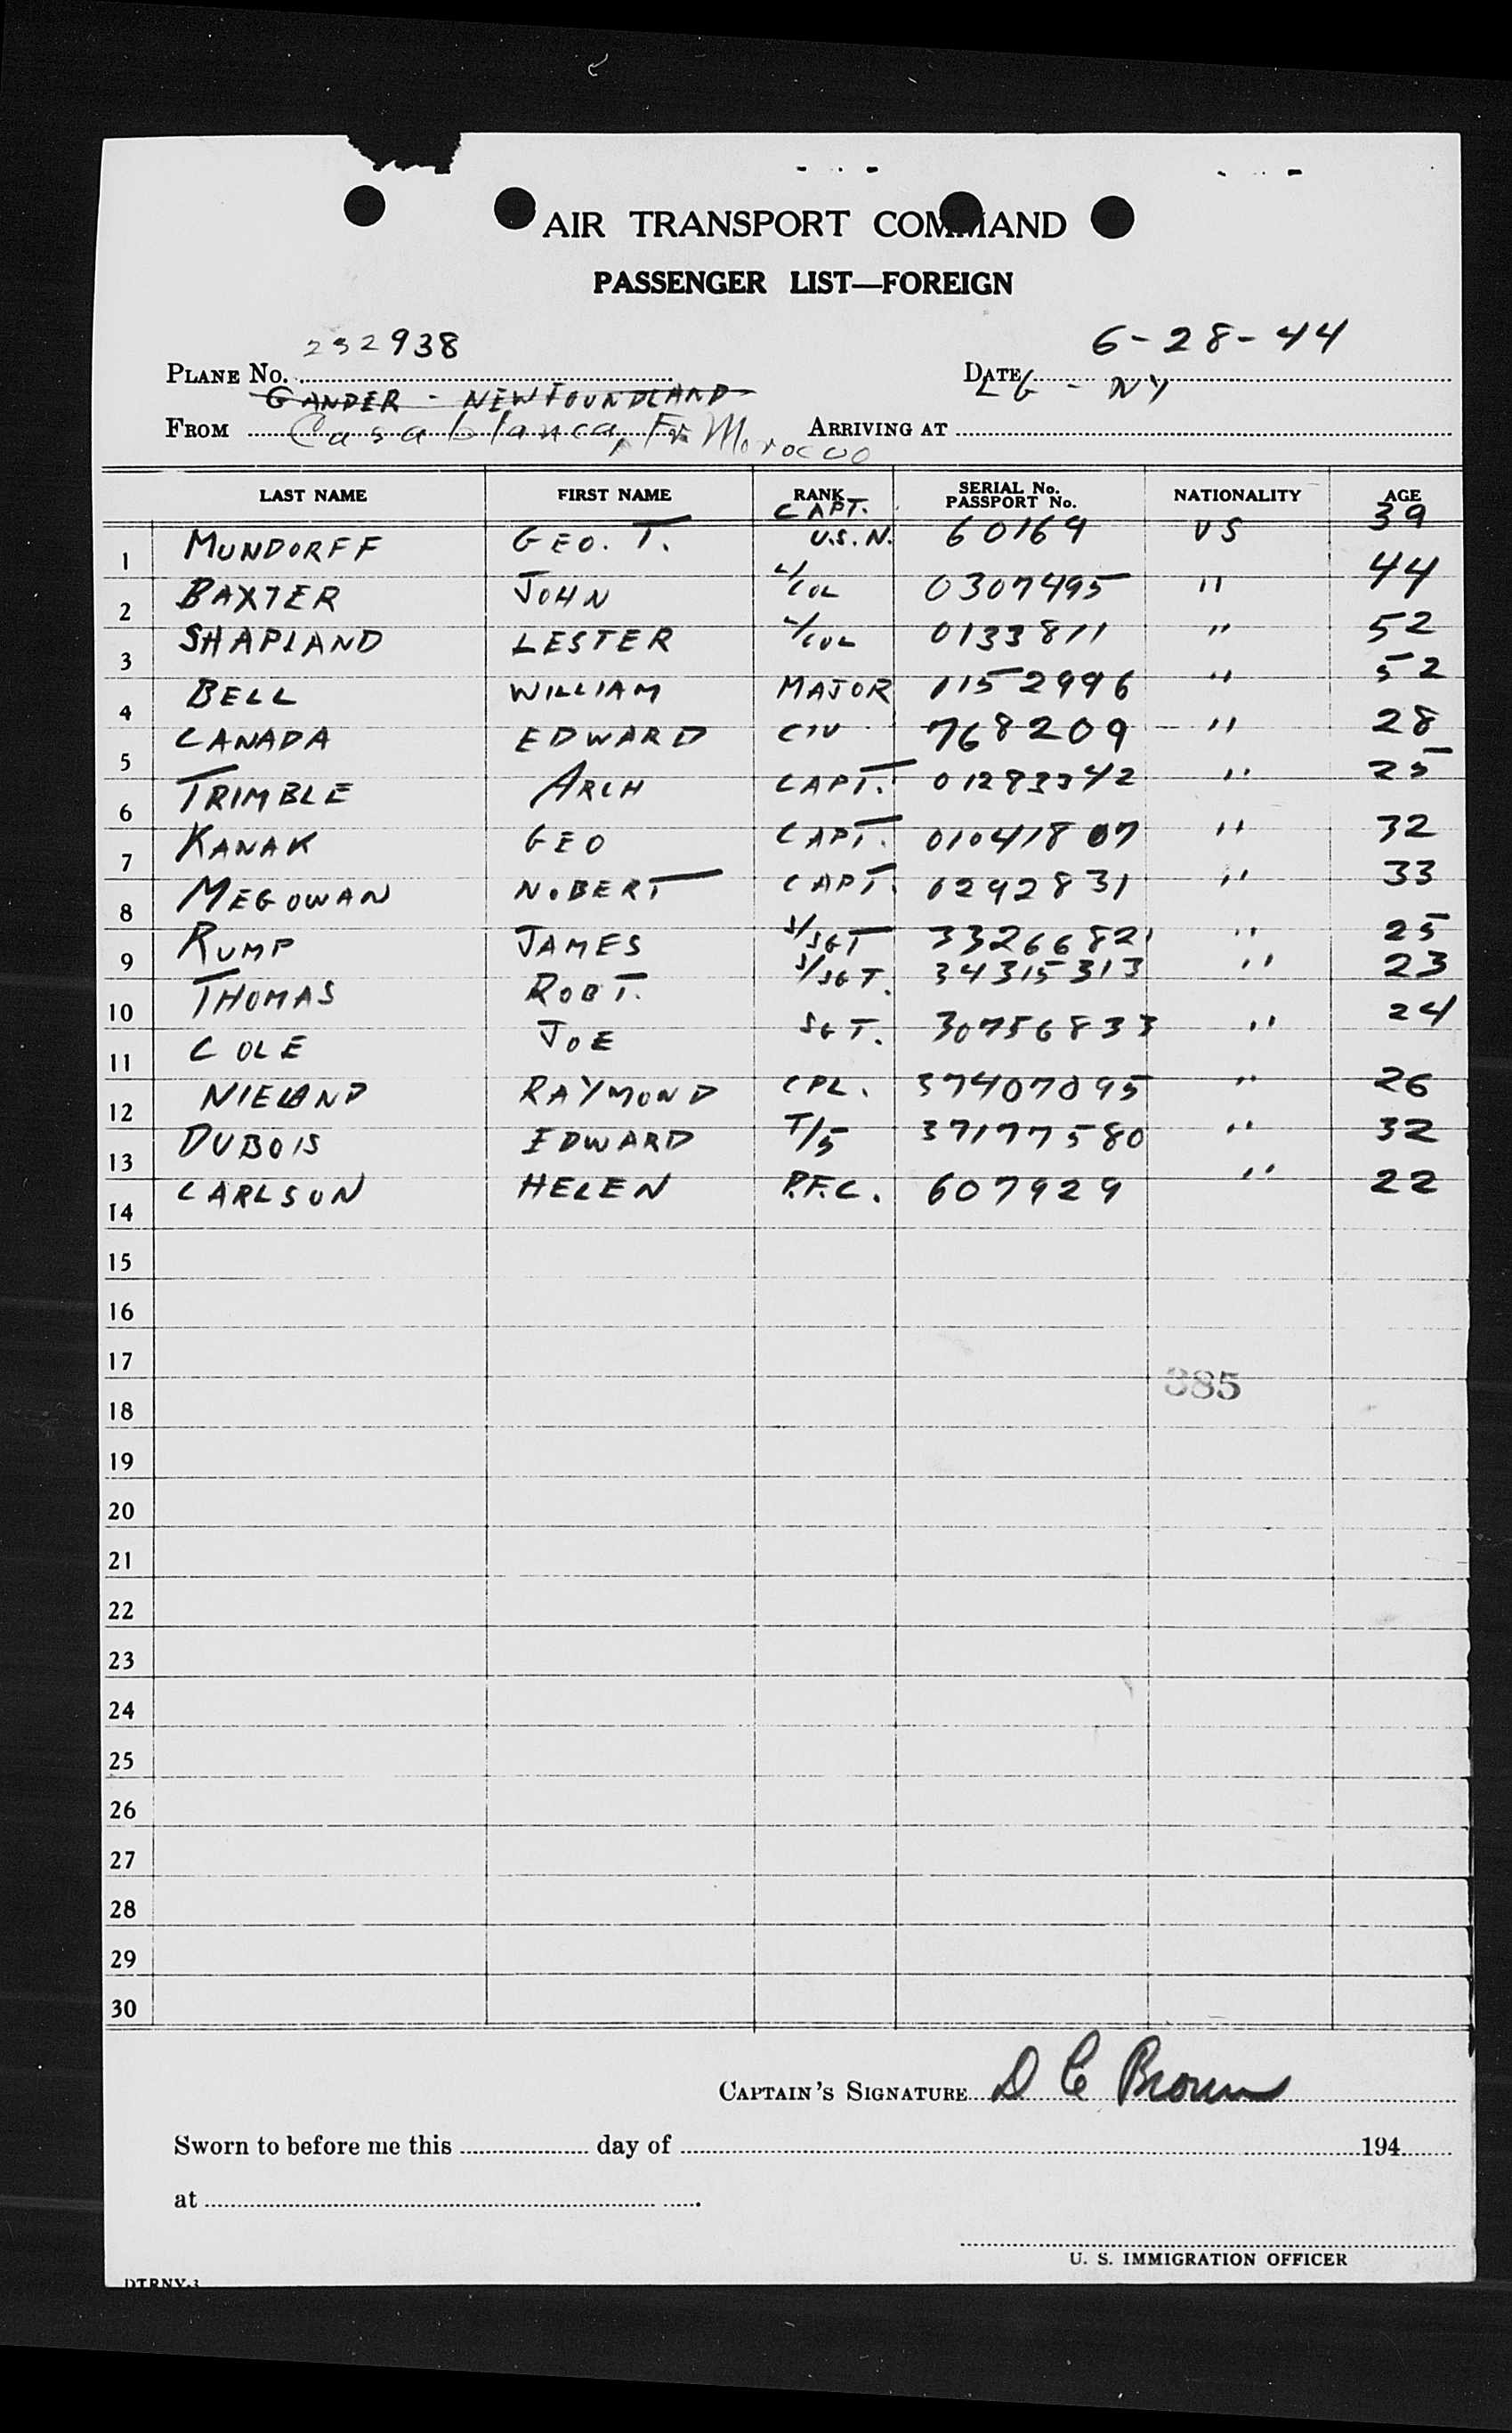 AIR TRANSPORT COMMAND
PASSENGER LIST—FOREIGN
PLANE No. 232938
DATE 6-28-44
GANDER - NEWFOUNDLAND
FROM Casablanca, Fr Morocco
ARRIVING AT LG - NY
LAST NAME FIRST NAME RANK SERIAL No. PASSPORT No. NATIONALITY AGE
1 MUNDORFF GEO. T. CAPT. U.S.N. 60169 US 39
2 BAXTER JOHN L/COL 0307495 " 44
3 SHAPLAND LESTER L/COL 0133811 " 52
4 BELL WILLIAM MAJOR 0152996 " 52
5 CANADA EDWARD CIV 768209 " 28
6 TRIMBLE ARCH CAPT. 01283342 " 25
7 KANAK GEO CAPT. 01041807 " 32
8 MEGOWAN NOBERT CAPT. 0292831 " 33
9 RUMP JAMES S/SGT 33266821 " 25
10 THOMAS ROBT. S/SGT. 34315313 " 23
11 COLE JOE SGT. 30756833 " 24
12 NIELAND RAYMOND CPL. 37407095 " 26
13 DUBOIS EDWARD T/5 37177580 " 32
14 CARLSON HELEN P.F.C. 607929 " 22
15
16
17
385
18
19
20
21
22
23
24
25
26
27
28
29
30
CAPTAIN'S SIGNATURE D C Brown
Sworn to before me this day of 194
at
U. S. IMMIGRATION OFFICER
DTRNY-3